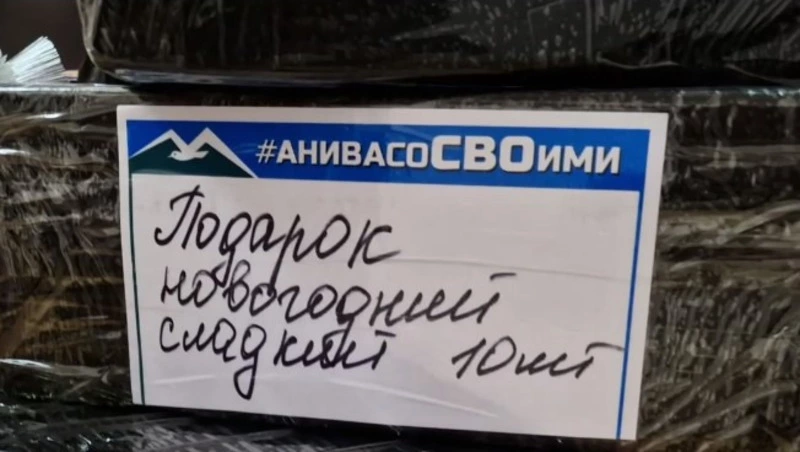 #АНИВАСОСВОИМИ
Подарок
новогодний
сладкий 10шт